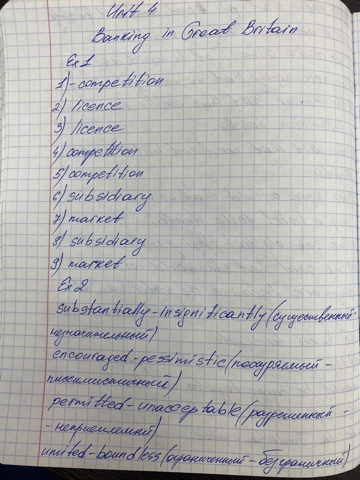 Unit 4
Banking in Great Britain
Ex 1
1)-competition
2) licence
3) licence
4) competition
5) competition
6) subsidiary
7) market
8) subsidiary
9) market
Ex 2
substantially-insignificantly (существенный-
незначительный)
encouraged-pessimistic (поощряемый-
пессимистичный)
permitted-unacceptable (разрешенный-
-неприемлемый)
limited-boundless (ограниченный-безграничный)